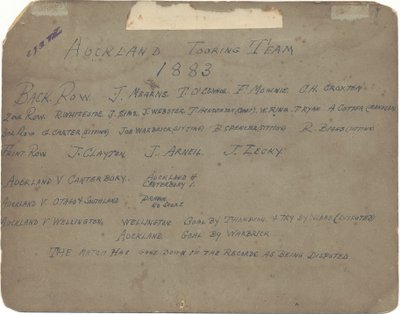 AUCKLAND TOURING TEAM
1883
BACK ROW. J. MEARNS. T. O'CONNOR. F. MOWNIE. C.H. CROXTON.
2ND ROW. R. WHITESIDE. J. SIMS. J. WEBSTER. T. HENDERSON (CAPT). W. RING. T. RYAN. A. COTTER
3RD ROW G. CARTER (SITTING) JOE WARBRICK (SITTING) B SPENCER (SITTING) R. BIGGS (SITTING)
FRONT ROW J. CLAYTON, J. ARNEIL. J. LECKY.
AUCKLAND V CANTERBURY. AUCKLAND 4
CANTERBURY 1.
AUCKLAND V. OTAGO & SOUTHLAND DRAWN
NO SCORE
AUCKLAND V WELLINGTON, WELLINGTON GOAL BY THOMPSON & TRY BY (DISPUTED)
AUCKLAND GOAL BY WARBRICK
THE MATCH HAS GONE DOWN IN THE RECORDS AS BEING DISPUTED